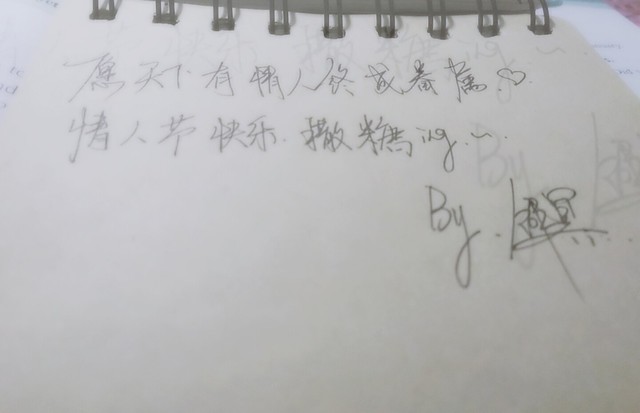 愿天下有情人终成眷属♡.
情人节快乐.撒糖ing~.
By.